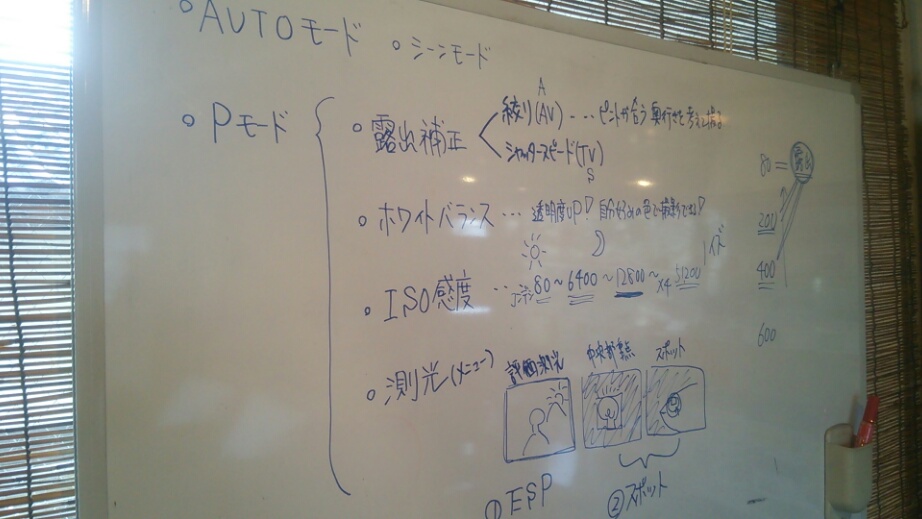 。AUTOモード 。シーンモード
。Pモード
。露出補正
A
絞り(AV) … ピントが合う 奥行きを考えて撮る
シャッタースピード(TV)
S
。ホワイトバランス … 透明度UP! 自分好みの色で撮影できる!
。ISO感度 … 80〜6400〜12800〜 51200
ノイズ
。測光(メニュー)
評価測光 中央部重点 スポット
①ESP ②スポット
80=
200
400
600